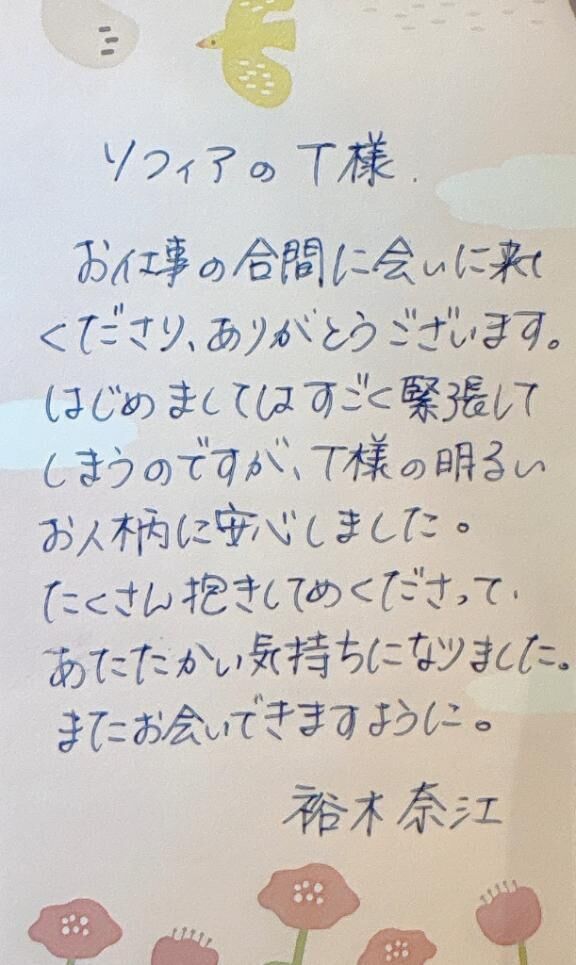 ソフィアの T様.
お仕事の合間に会いに来て
くださり、ありがとうございます。
はじめましてはすごく緊張して
しまうのですが、T様の明るい
お人柄に安心しました。
たくさん抱きしてめくださって、
あたたかい気持ちになりました。
またお会いできますように。
裕木奈江